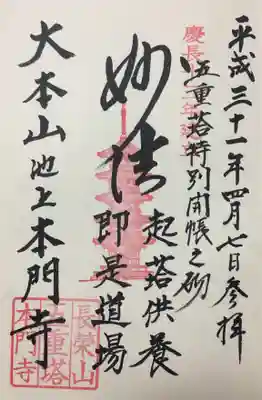 平成三十一年四月七日参拝
慶長
五重塔特別開帳之砌
妙法
起塔供養
即是道場
大本山池上本門寺
長榮山
五重塔
本門寺